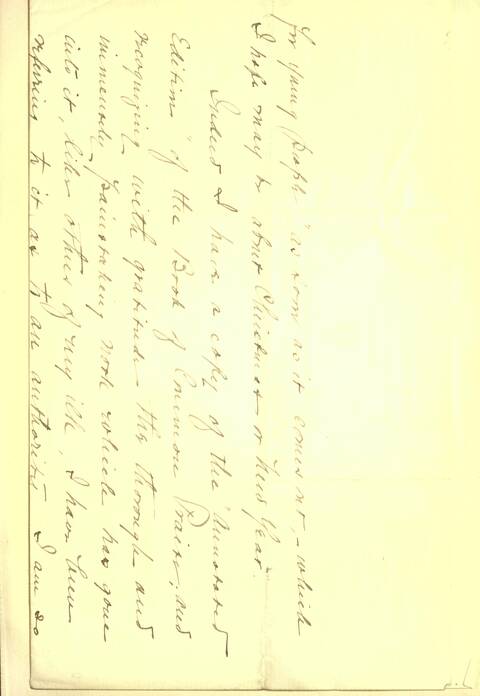 for young people" as soon as it comes out, – which
I hope may be about Christmas or New Year.
Indeed I have a copy of the "Annotated
Edition" of the Book of Common Praise, and
recognizing with gratitude the thorough and
immensely painstaking work which has gone
into it, like others of my ilk, I have been
referring to it as to an authority. I am so